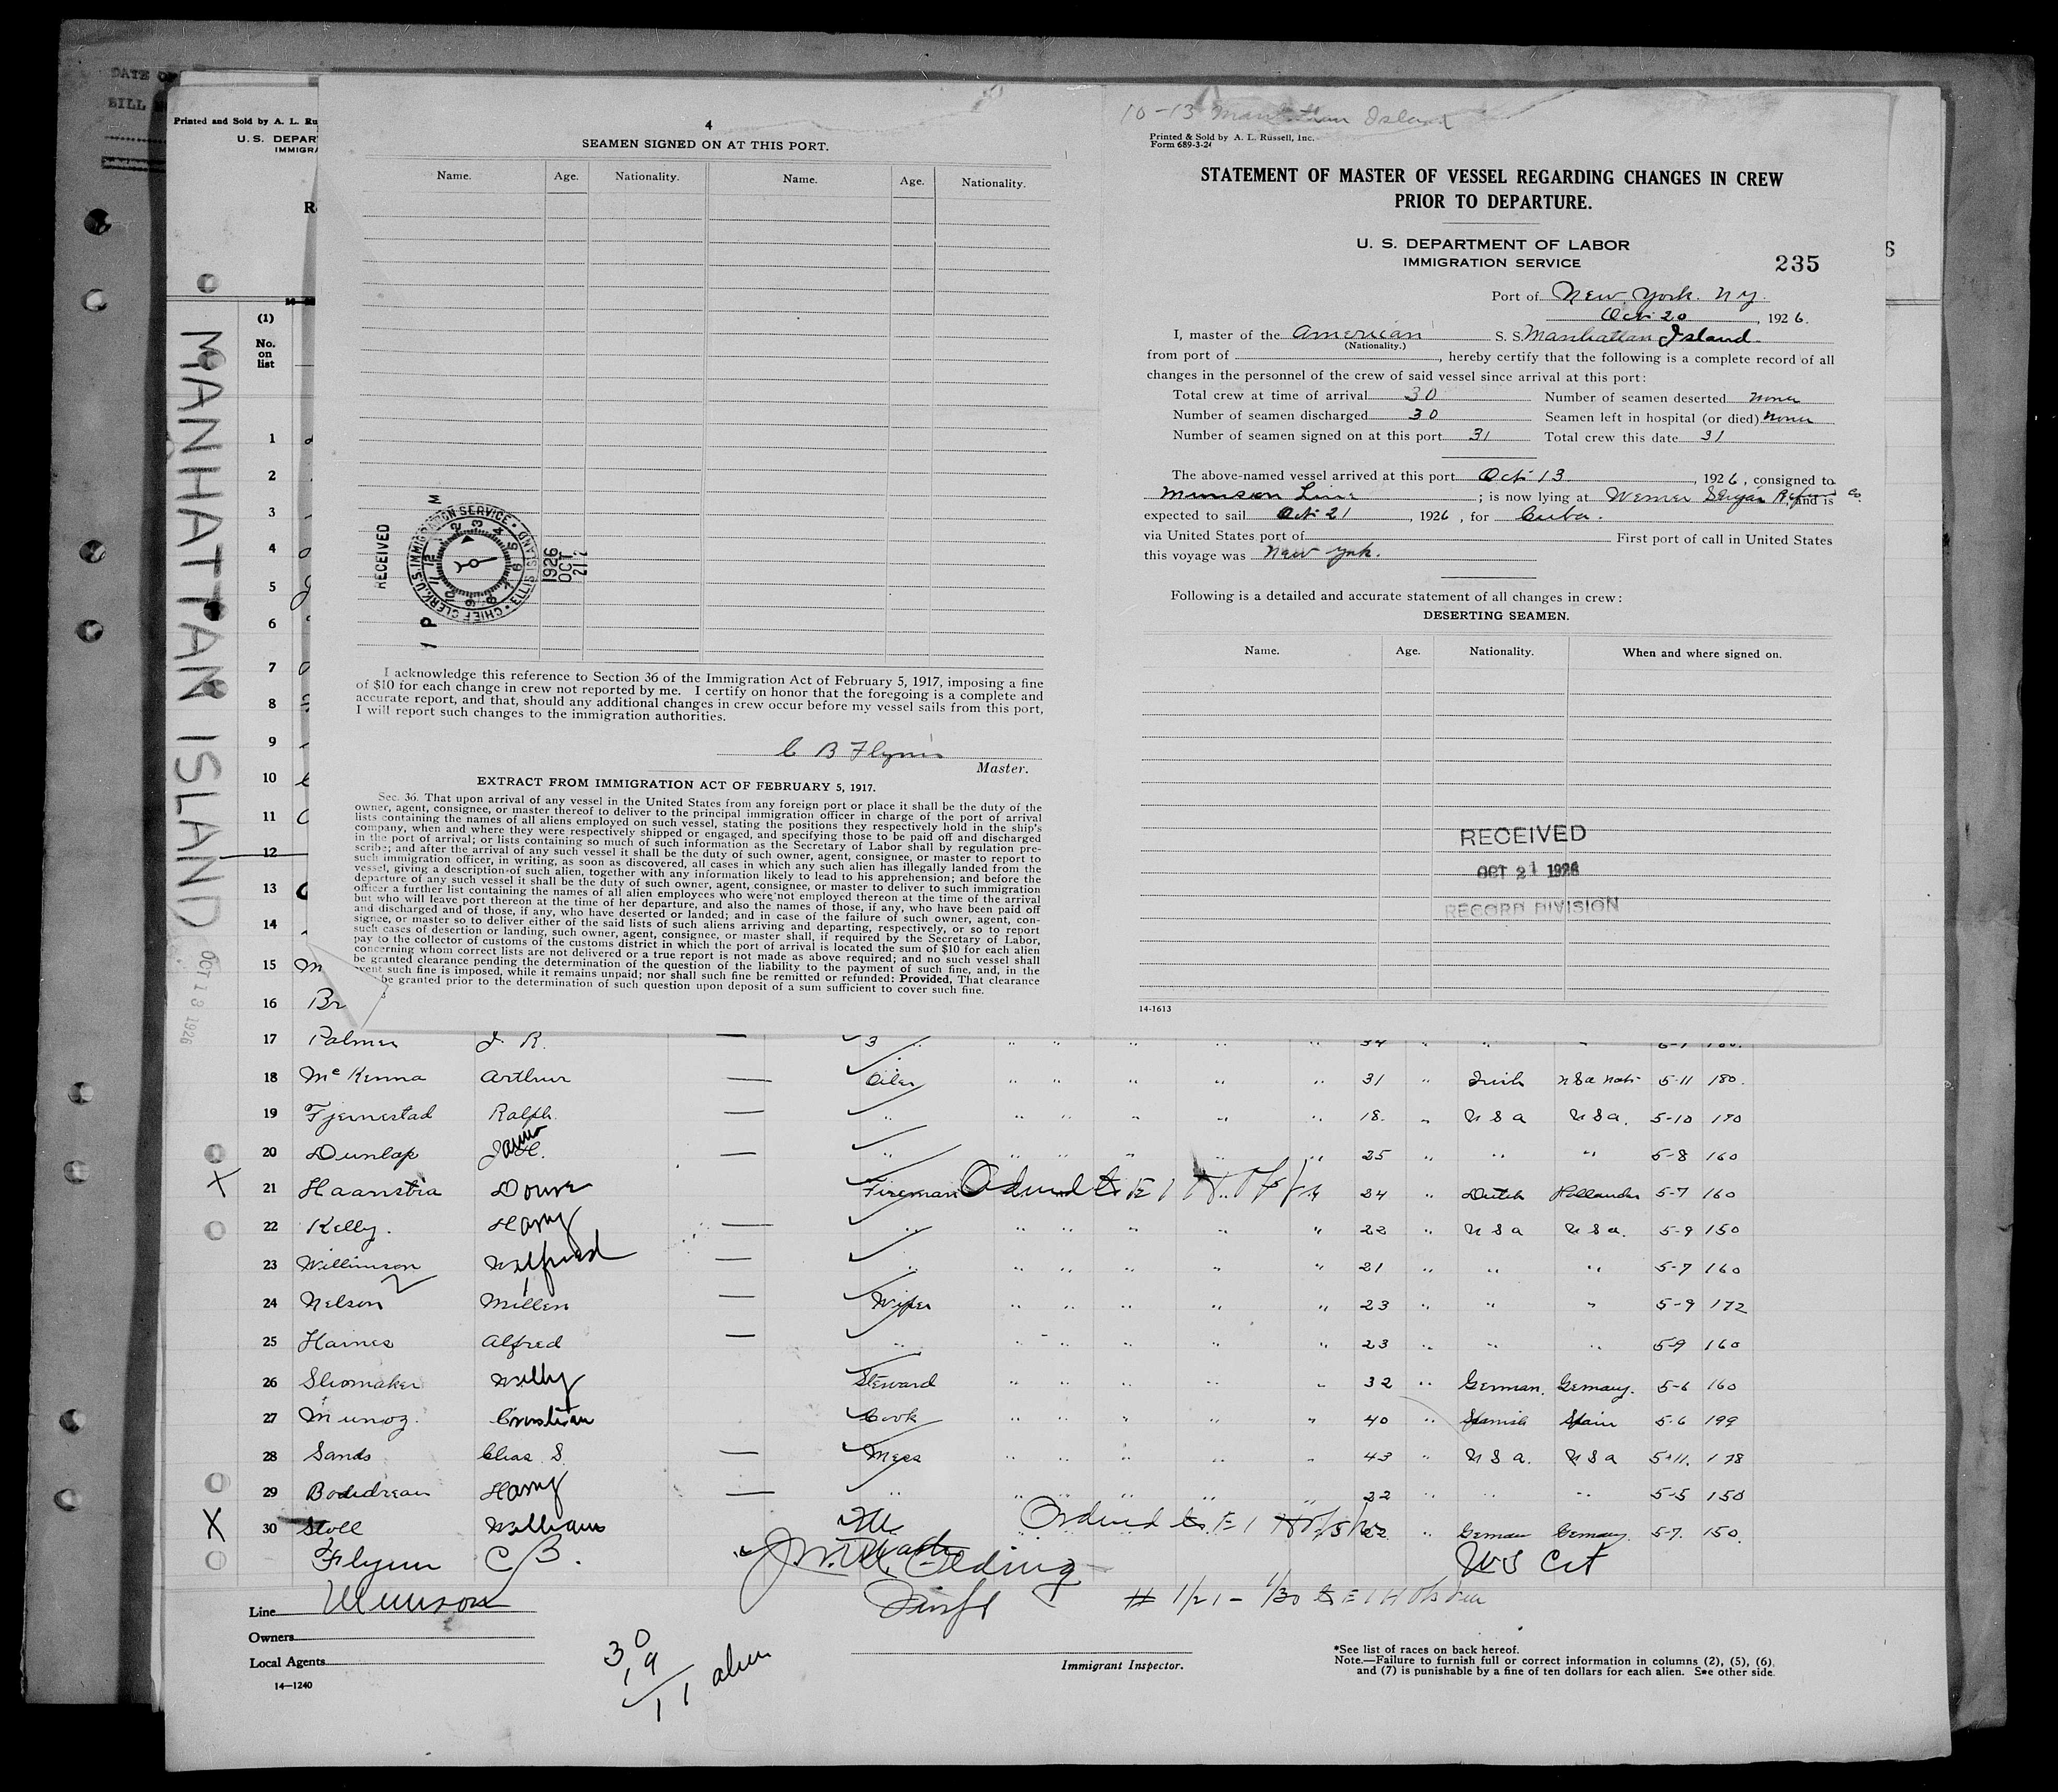 DATE OF
BILL
Printed and Sold by A. L. Ru
U. S. DEPAR
IMMIGRA
R
(1)
No.
on
list
MANHATTAN ISLAND
OCT 13 1926
4
SEAMEN SIGNED ON AT THIS PORT.
Name. Age. Nationality. Name. Age. Nationality.
RECEIVED
CHIEF CLERK, U.S. IMMIGRATION SERVICE • ELLIS ISLAND
1926
OCT
21
1 P M
I acknowledge this reference to Section 36 of the Immigration Act of February 5, 1917, imposing a fine
of $10 for each change in crew not reported by me. I certify on honor that the foregoing is a complete and
accurate report, and that, should any additional changes in crew occur before my vessel sails from this port,
I will report such changes to the immigration authorities.
C B Flynn
Master.
EXTRACT FROM IMMIGRATION ACT OF FEBRUARY 5, 1917.
Sec. 36. That upon arrival of any vessel in the United States from any foreign port or place it shall be the duty of the
owner, agent, consignee, or master thereof to deliver to the principal immigration officer in charge of the port of arrival
lists containing the names of all aliens employed on such vessel, stating the positions they respectively hold in the ship's
company, when and where they were respectively shipped or engaged, and specifying those to be paid off and discharged
in the port of arrival; or lists containing so much of such information as the Secretary of Labor shall by regulation pre-
scribe; and after the arrival of any such vessel it shall be the duty of such owner, agent, consignee, or master to report to
such immigration officer, in writing, as soon as discovered, all cases in which any such alien has illegally landed from the
vessel, giving a description of such alien, together with any information likely to lead to his apprehension; and before the
departure of any such vessel it shall be the duty of such owner, agent, consignee, or master to deliver to such immigration
officer a further list containing the names of all alien employees who were not employed thereon at the time of the arrival
but who will leave port thereon at the time of her departure, and also the names of those, if any, who have been paid off
and discharged and of those, if any, who have deserted or landed; and in case of the failure of such owner, agent, con-
signee, or master so to deliver either of the said lists of such aliens arriving and departing, respectively, or so to report
such cases of desertion or landing, such owner, agent, consignee, or master shall, if required by the Secretary of Labor,
pay to the collector of customs of the customs district in which the port of arrival is located the sum of $10 for each alien
concerning whom correct lists are not delivered or a true report is not made as above required; and no such vessel shall
be granted clearance pending the determination of the question of the liability to the payment of such fine, and, in the
event such fine is imposed, while it remains unpaid; nor shall such fine be remitted or refunded: Provided, That clearance
be granted prior to the determination of such question upon deposit of a sum sufficient to cover such fine.
10-13 Manhattan Island
Printed & Sold by A. L. Russell, Inc.
Form 689-3-24
STATEMENT OF MASTER OF VESSEL REGARDING CHANGES IN CREW
PRIOR TO DEPARTURE.
U. S. DEPARTMENT OF LABOR
IMMIGRATION SERVICE
235
6
Port of New York. N y.
Oct 20, 1926.
I, master of the American S. S. Manhattan Island.
(Nationality.)
from port of , hereby certify that the following is a complete record of all
changes in the personnel of the crew of said vessel since arrival at this port:
Total crew at time of arrival 30 Number of seamen deserted none
Number of seamen discharged 30 Seamen left in hospital (or died) none
Number of seamen signed on at this port 31 Total crew this date 31
The above-named vessel arrived at this port Oct 13, 1926, consigned to
Munson Line; is now lying at Werner Sugar Co, and is
expected to sail Oct 21, 1926, for Cuba.
via United States port of First port of call in United States
this voyage was New York.
Following is a detailed and accurate statement of all changes in crew:
DESERTING SEAMEN.
Name. Age. Nationality. When and where signed on.
RECEIVED
OCT 21 1926
RECORD DIVISION
14-1613
1
2
3
4
5
6
7
8
9
10
11
12
13
14
15 M
16 Br
17 Palmer J. R. — 3 " " " " " 34 " " "
18 McKenna Arthur — Oiler " " " " " 31 " Irish USA Nat 5-11 180.
19 Fjernestad Ralph. — " " " " " " 18. " U S A U S A. 5-10 170
20 Dunlap James — " " " " " " 25 " " " 5-8 160
X 21 Haanstra Douwe Fireman Ordered to E I 24 " Dutch Hollander 5-7 160
22 Kelly. Harry — " " " " " " 22 " U S A U S A. 5-9 150
23 Willimson Wilfred — " " " " " " 21 " " " 5-7 160
24 Nelson Millen — Wiper " " " " " 23 " " " 5-9 172
25 Haines Alfred — " " " " " " 23 " " " 5-9 160
26 Shomaker Willy Steward " " " " " 32 " German. Germany. 5-6 160
27 Munoz. Christian Cook " " " " " 40 " Spanish Spain 5-6 199
28 Sands Chas S. — Mess " " " " " 43 " U S A. U S A 5-11. 178
29 Boudreau Harry — " " " " " " 22 " " " 5-5 150
X 30 Stoll William Ordered to E I 22 " German Germany 5-7. 150.
Flynn C B. US Cit
Line Munson
Owners
Local Agents
14—1240
30
19
11 alien
# 1/21 - 1/30 to E I
Immigrant Inspector.
*See list of races on back hereof.
Note.—Failure to furnish full or correct information in columns (2), (5), (6),
and (7) is punishable by a fine of ten dollars for each alien. See other side.